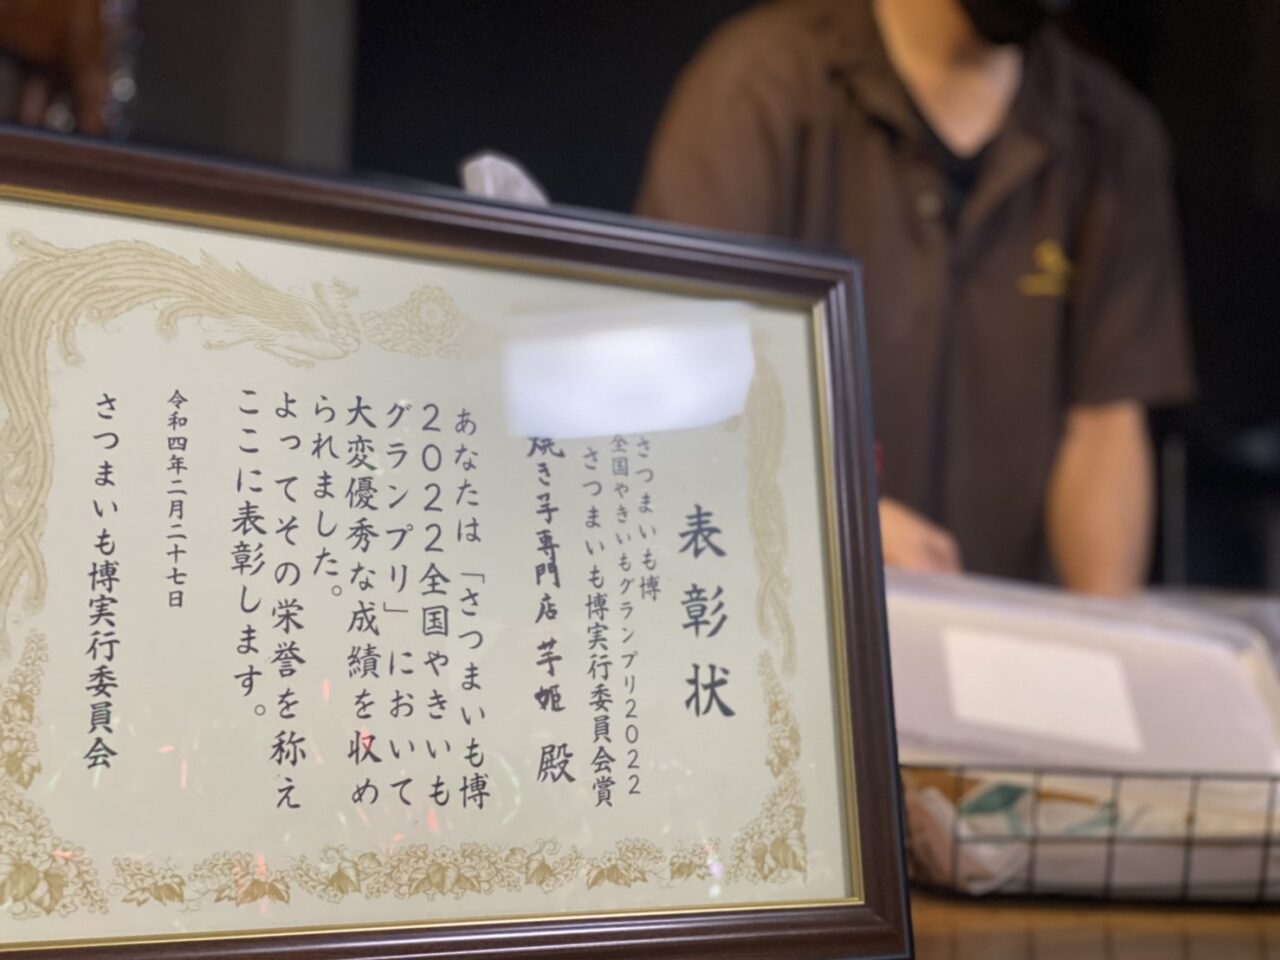 表彰状
さつまいも博
全国やきいもグランプリ2022
さつまいも博実行委員会賞
焼き芋専門店 芋姫 殿
あなたは「さつまいも博
2022全国やきいも
グランプリ」において
大変優秀な成績を収め
られました。
よってその栄誉を称え
ここに表彰します。
令和四年二月二十七日
さつまいも博実行委員会